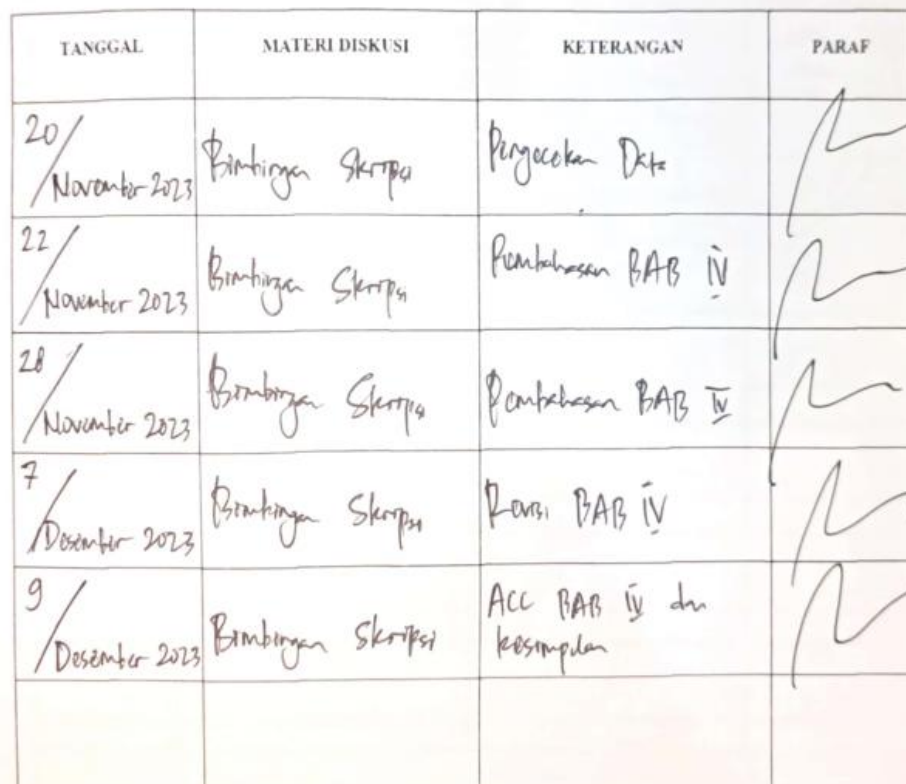 TANGGAL MATERI DISKUSI KETERANGAN PARAF
20/November 2023 Bimbingan Skripsi Pengecekan Data
22/November 2023 Bimbingan Skripsi Pembahasan BAB IV
28/November 2023 Bimbingan Skripsi Pembahasan BAB IV
7/Desember 2023 Bimbingan Skripsi Revisi BAB IV
9/Desember 2023 Bimbingan Skripsi ACC BAB IV dan
kesimpulan